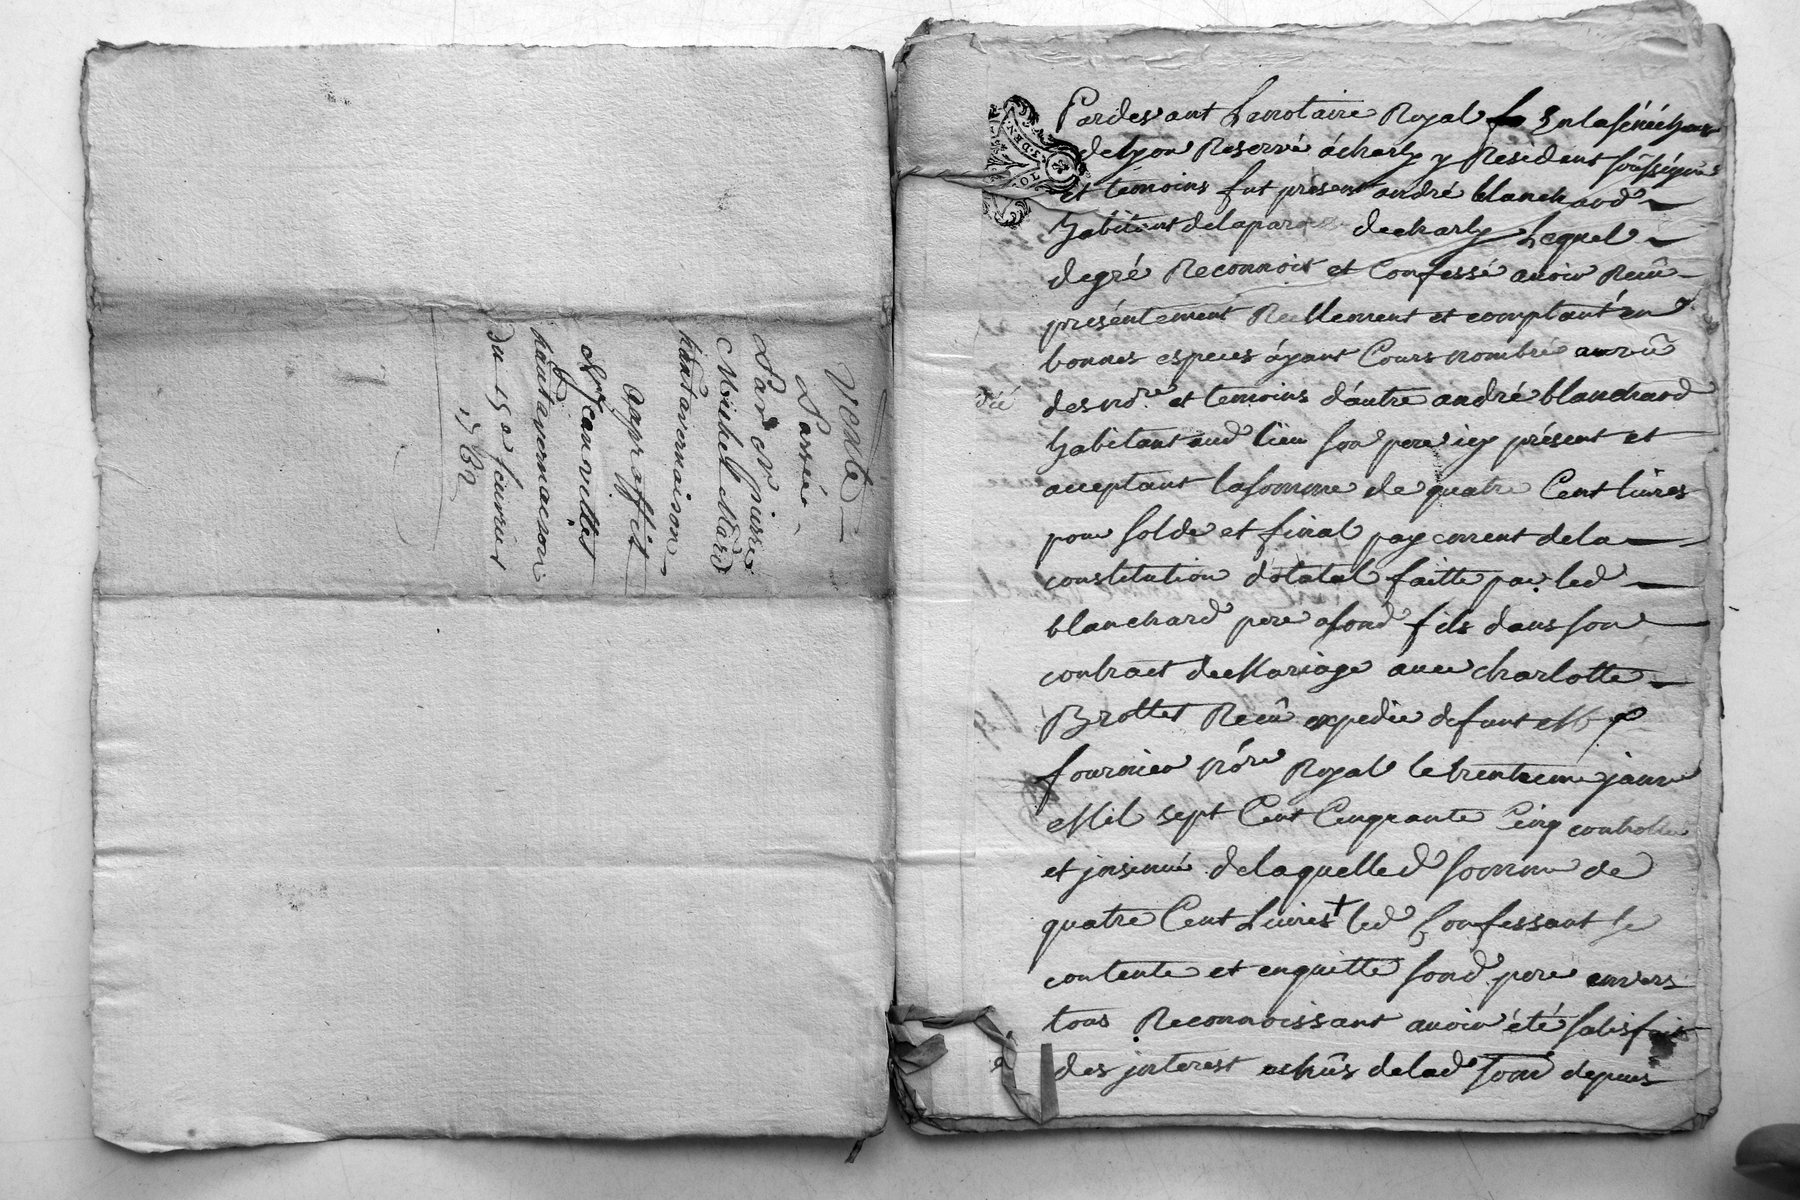 Vente
Passée
Par Sr pierre
Michel Mard
haut avernaison
au proffit
Sr Jean
haut avernaison
du 15e feuvrier
1762
Pardevant Le notaire Royal En la sénéchaus
de Lyon Reservé a charly y Résident soussigné
et témoins fut present andré blanchard
habitant de la parois de charly Lequel
de gré Reconnoit et Confessé avoir Reçû
présentement Reellement et comptant en
bonnes especes ayant Cours nombré au vû
des nore et temoins d'autre andré blanchard
habitant aud lieu son pere icy présent et
acceptant la somme de quatre Cent livres
pour solde et final payement de la
constitution dotatal faitte par led
blanchard pere a sond fils dans son
contract de Mariage avec charlotte
Brottet Reçû expedié defunt Me
fournier nore Royal le trentieme janvr
Mil sept Cent Cinquante Cinq controllé
et jnsinué de laquelled somme de
quatre Cent Livres + led Confessant se
contente et enquitte sond pere envers
tous Reconnoissant avoir été satisfait
des jnterest echûs de lad som depuis